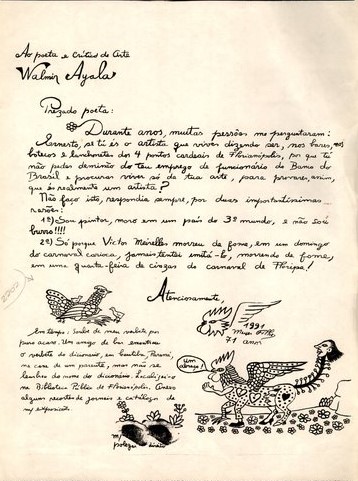 Ao poeta e crítico de Arte
Walmir Ayala
Prezado poeta:
Durante anos, muitas pessôas me perguntaram:
se tu és o artista que vives dizendo ser, nos bares, nos
botecos e lanchonetes dos 4 pontos cardeais de Florianópolis, por que tu
não pedes demissão do teu emprego de funcionário do Banco do
Brasil e procurar viver só da tua arte, para provares, assim,
que és realmente um artista?
Não faço isto, respondia sempre, por duas importantíssimas
razões:
1ª) Sou pintor, moro em um país do 3º mundo, e não sou
burro!!!!
2ª) Só porque Victor Meirelles morreu de fome, em um domingo
do carnaval carioca, jamais tentei imitá-lo, morrendo de fome,
em uma quarta-feira de cinzas do carnaval de Floripa!
Atenciosamente,
1991
71 anos
Um
abraço!
Em tempo: Soube do meu verbete por
puro acaso. Um amigo de bar encontrou
o verbete do dicionário, em Curitiba, Paraná,
na casa de um parente, mas não se
lembra do nome do dicionário.
na Biblioteca Pública de Florianópolis.
alguns recortes de jornais e catálogo de
exposição.
polegar